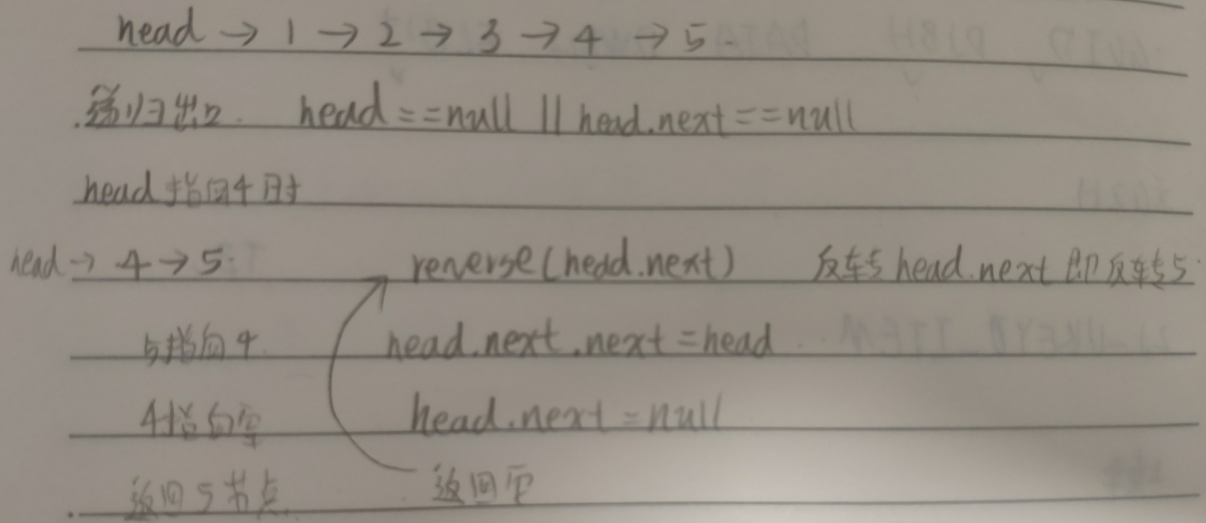 head → 1 → 2 → 3 → 4 → 5
递归出口 head==null || head.next==null
head指向4时
head → 4 → 5 reverse(head.next) 反转head.next即反转5
5指向4 head.next.next=head
4指向空 head.next=null
返回5节点 返回